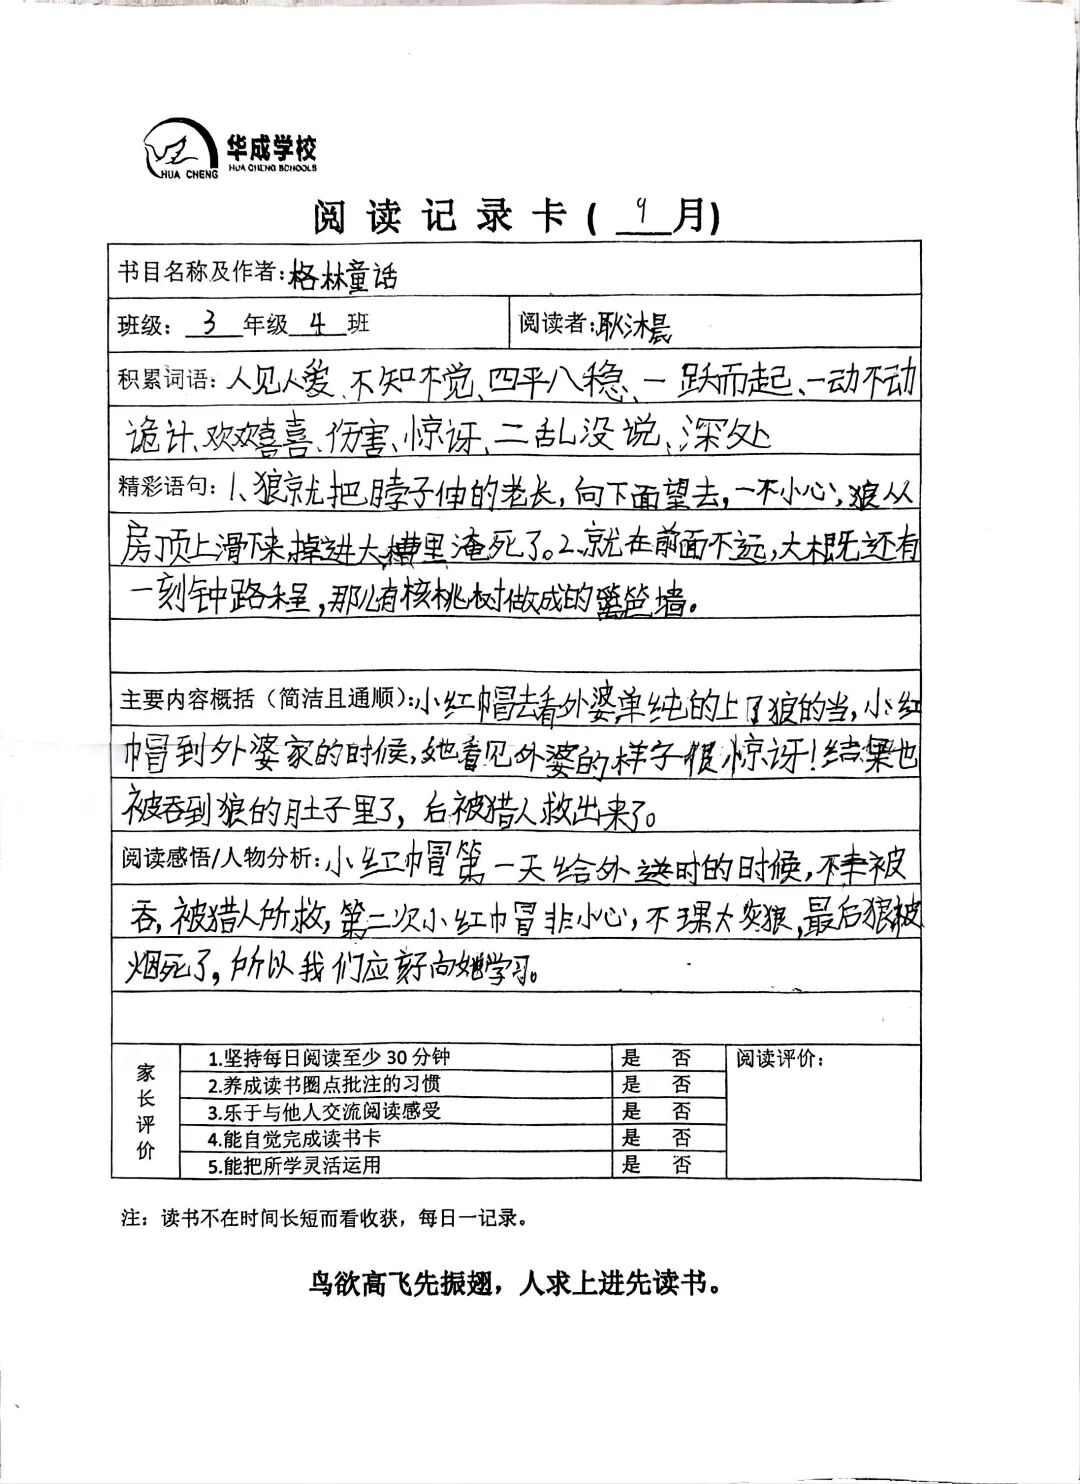 华成学校
HUA CHENG SCHOOLS
HUA CHENG
阅读记录卡( 9 月)
书目名称及作者:格林童话
班级: 3 年级 4 班
阅读者:耿沐晨
积累词语:人见人爱、不知不觉、四平八稳、一跃而起、一动不动
诡计、欢欢喜喜、伤害、惊讶、二乱没说、深处
精彩语句:1、狼就把脖子伸的老长,向下面望去,一不小心,狼从
房顶上滑下来,掉进大槽里淹死了。2、就在前面不远,大概还有
一刻钟路程,那儿有核桃树做成的篱笆墙。
主要内容概括(简洁且通顺):小红帽去看外婆,单纯的上了狼的当,小红
帽到外婆家的时候,她看见外婆的样子很惊讶!结果也
被吞到狼的肚子里了,后被猎人救出来了。
阅读感悟/人物分析:小红帽第一天给外送时的时候,不幸被
吞,被猎人所救,第二次小红帽非小心,不理大灰狼,最后狼被
烟死了,所以我们应好向她学习。
家长评价
1.坚持每日阅读至少30分钟 是 否
2.养成读书圈点批注的习惯 是 否
3.乐于与他人交流阅读感受 是 否
4.能自觉完成读书卡 是 否
5.能把所学灵活运用 是 否
阅读评价:
注:读书不在时间长短而看收获,每日一记录。
鸟欲高飞先振翅,人求上进先读书。